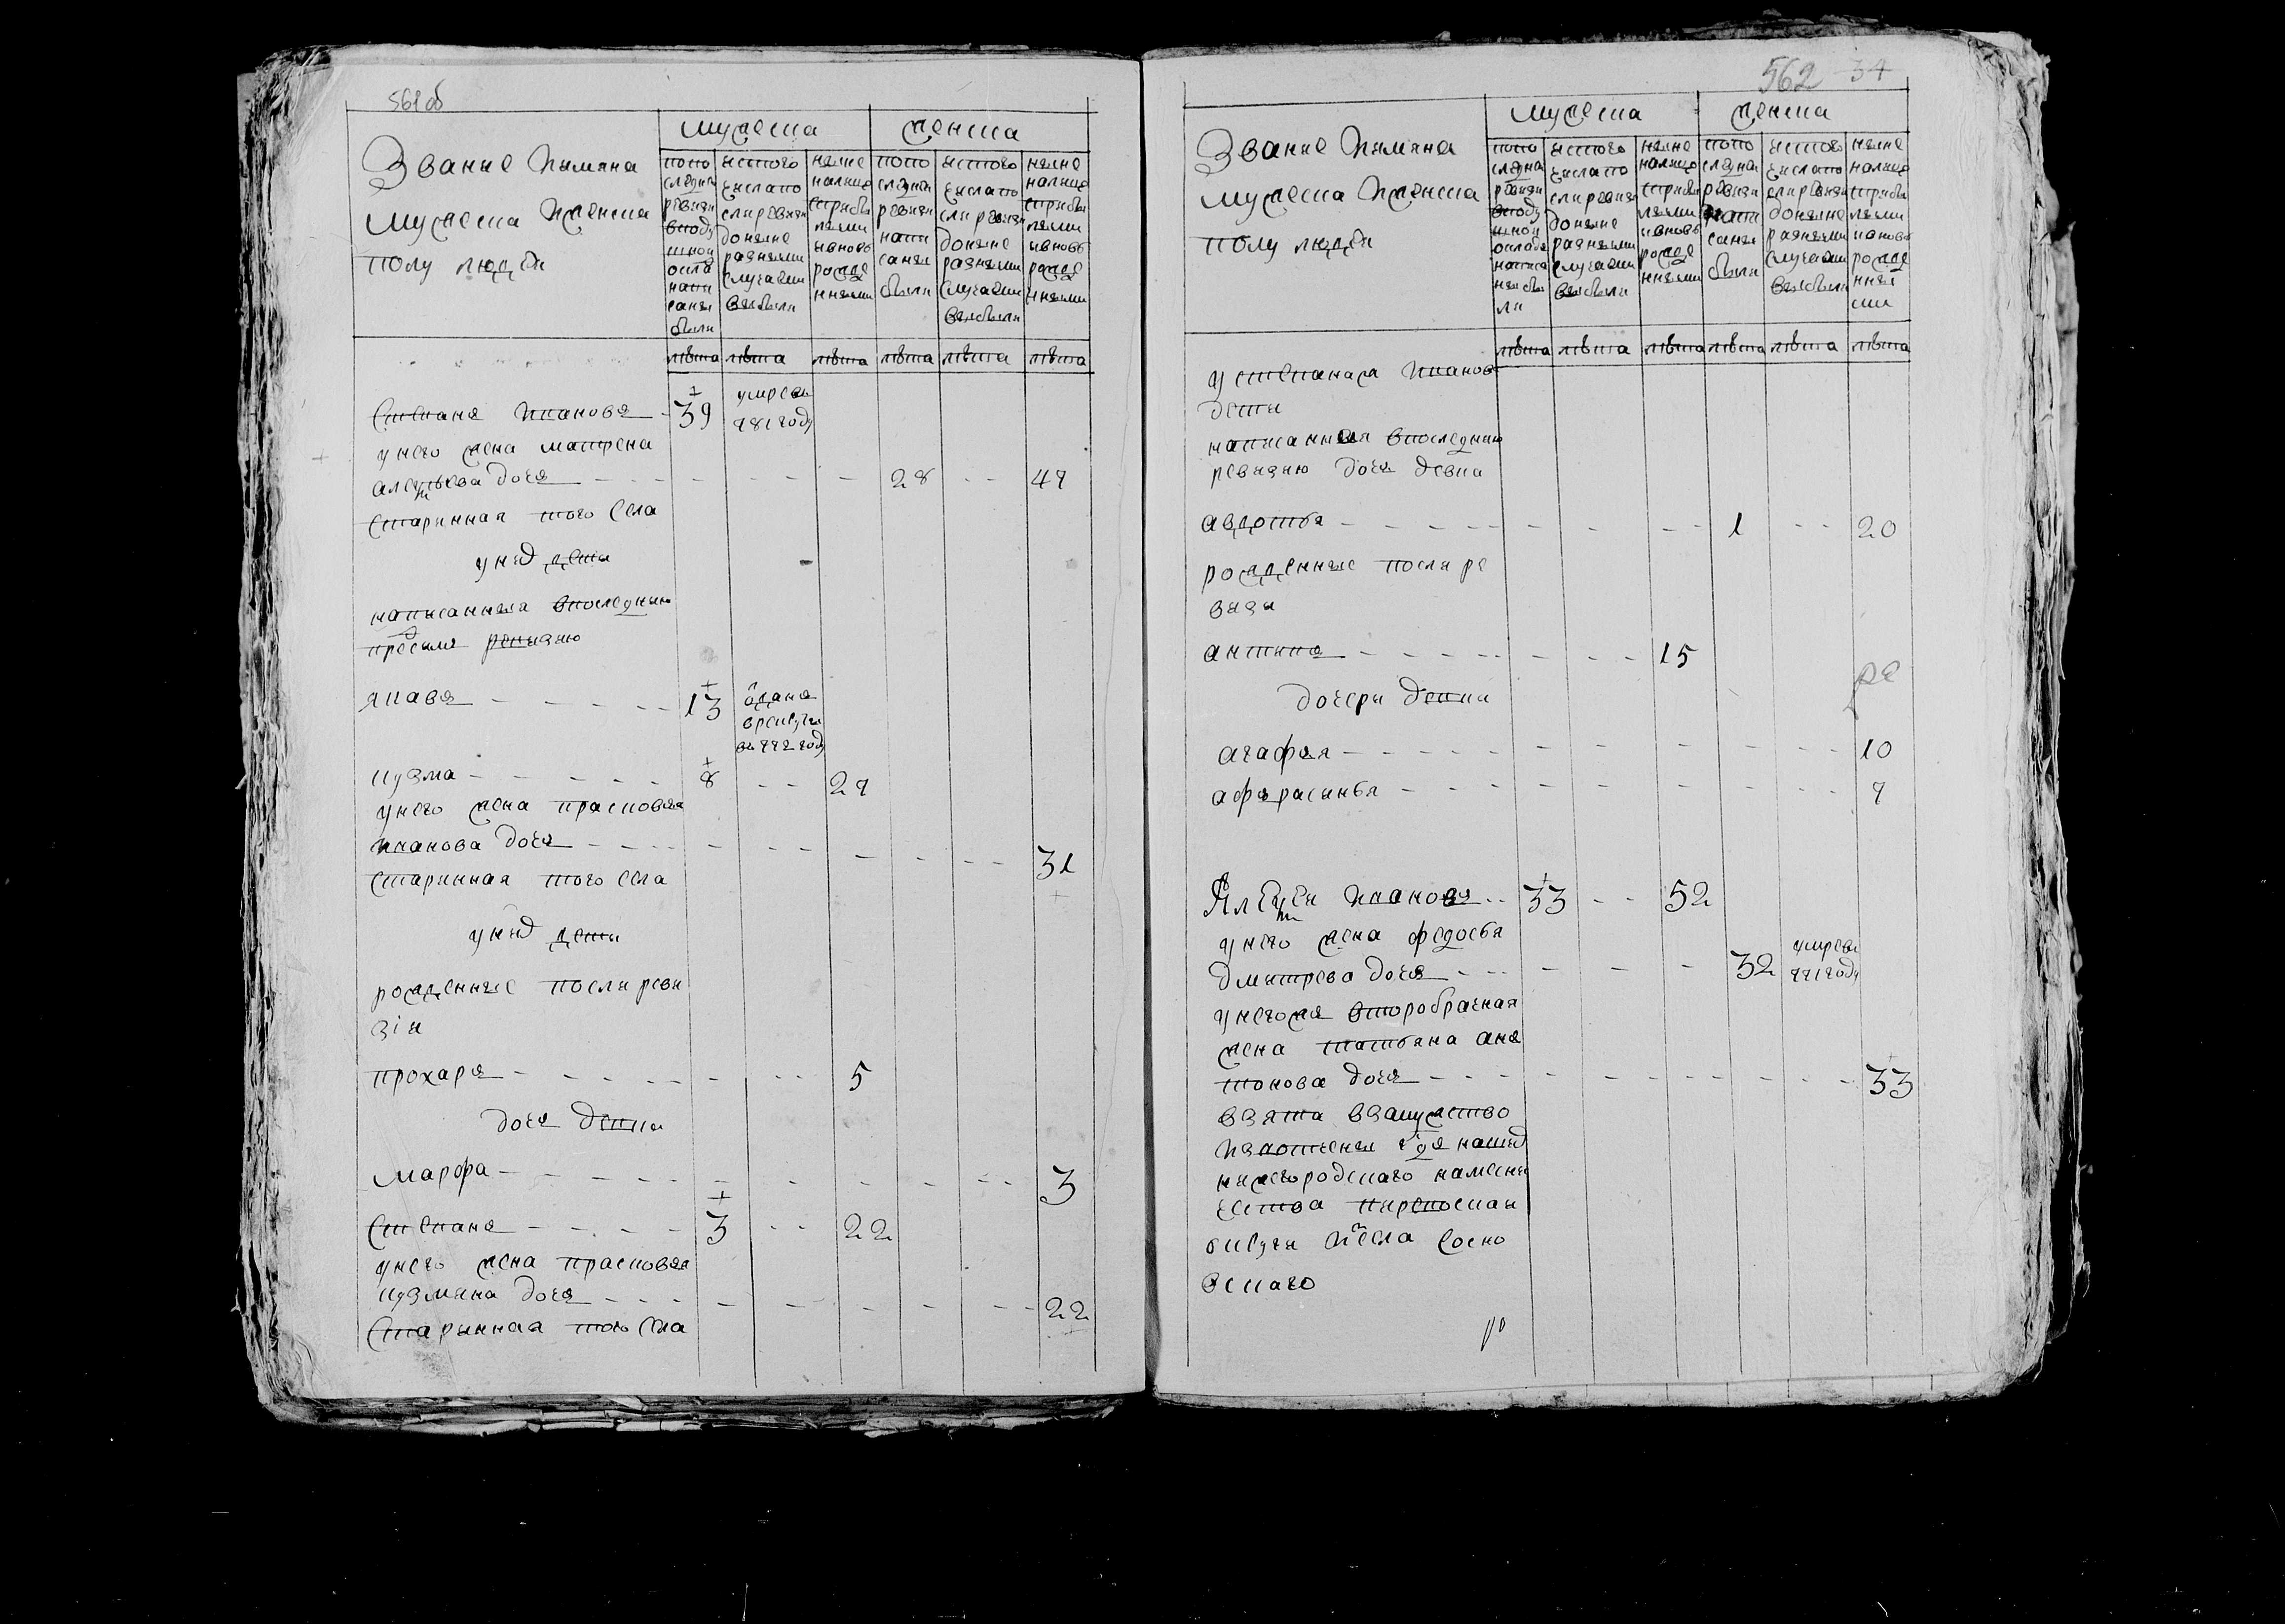 561об
Звание иимяна
мужеска иженска
полу людеи
мужеска
женска
попо
следнеи
ревизи
вподу
шнои
окла
напи
саны
были
изтого
числа по
сли ревизи
доныне
разными
случаями
выбыли
ныне
налицо
сприбы
лыми
ивновь
рожде
нными
попо
следнеи
ревизи
напи
саны
были
изтого
числа по
сли ревизи
доныне
разными
случаями
выбыли
ныне
налицо
сприбы
лыми
ивновь
рожде
нными
лѣта лѣта лѣта лѣта лѣта лѣта
Степанъ Ивановъ 39 умре въ
781 году
унего жена матрена
алексѣева дочь 28 47
старинная того села
уних дети
написанныя впоследнюю
пред сим ревизию
яковъ 13 отданъ
врекруты
въ 772 году
кузма 8 27
унего жена прасковья
иванова дочь 31
старинная того села
уних дети
рожденные посли реви
зіи
прохаръ 5
дочь девка
марфа 3
степанъ 3 22
унего жена прасковья
кузмина дочь 22
старинная того села
562 34
Звание иимяна
мужеска иженска
полу людеи
мужеска
женска
попо
следнеи
ревизи
вподу
шнои
окладъ
написа
ны бы
ли
изтого
числа по
сли ревизи
доныне
разными
случаями
выбыли
ныне
налицо
сприбы
лыми
ивновь
рожде
нными
попо
следнеи
ревизи
напи
саны
были
изтого
числа по
сли ревизи
доныне
разными
случаями
выбыли
ныне
налицо
сприбы
лыми
ивновь
рожде
нны
ми
лѣта лѣта лѣта лѣта лѣта лѣта
устепанажа иванов
дети
написанныя впоследнюю
ревизию дочь девка
авдотья 1 20
рожденные посли ре
визи
антипъ 15
дочери девки
агафья 10
афрасинья 7
Алексеи Ивановъ 33 52
унего жена федосья
дмитрева дочь 32 умре въ
771 году
унегожъ второбрачная
жена татьяна ан
тонова дочь 33
взята взамужство
нижегородскаго намесни
чества
села сосно
вскаго